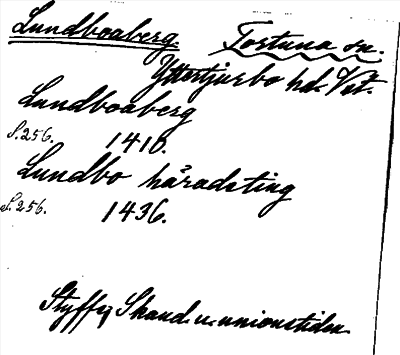 Lundboaberg. Tortuna sn.
Yttertjurbo hd. Vst.
Lundboaberg
S. 256. 1410.
Lundbo häradsting
S. 256. 1436.
Styffe, Skand. u. unionstiden.